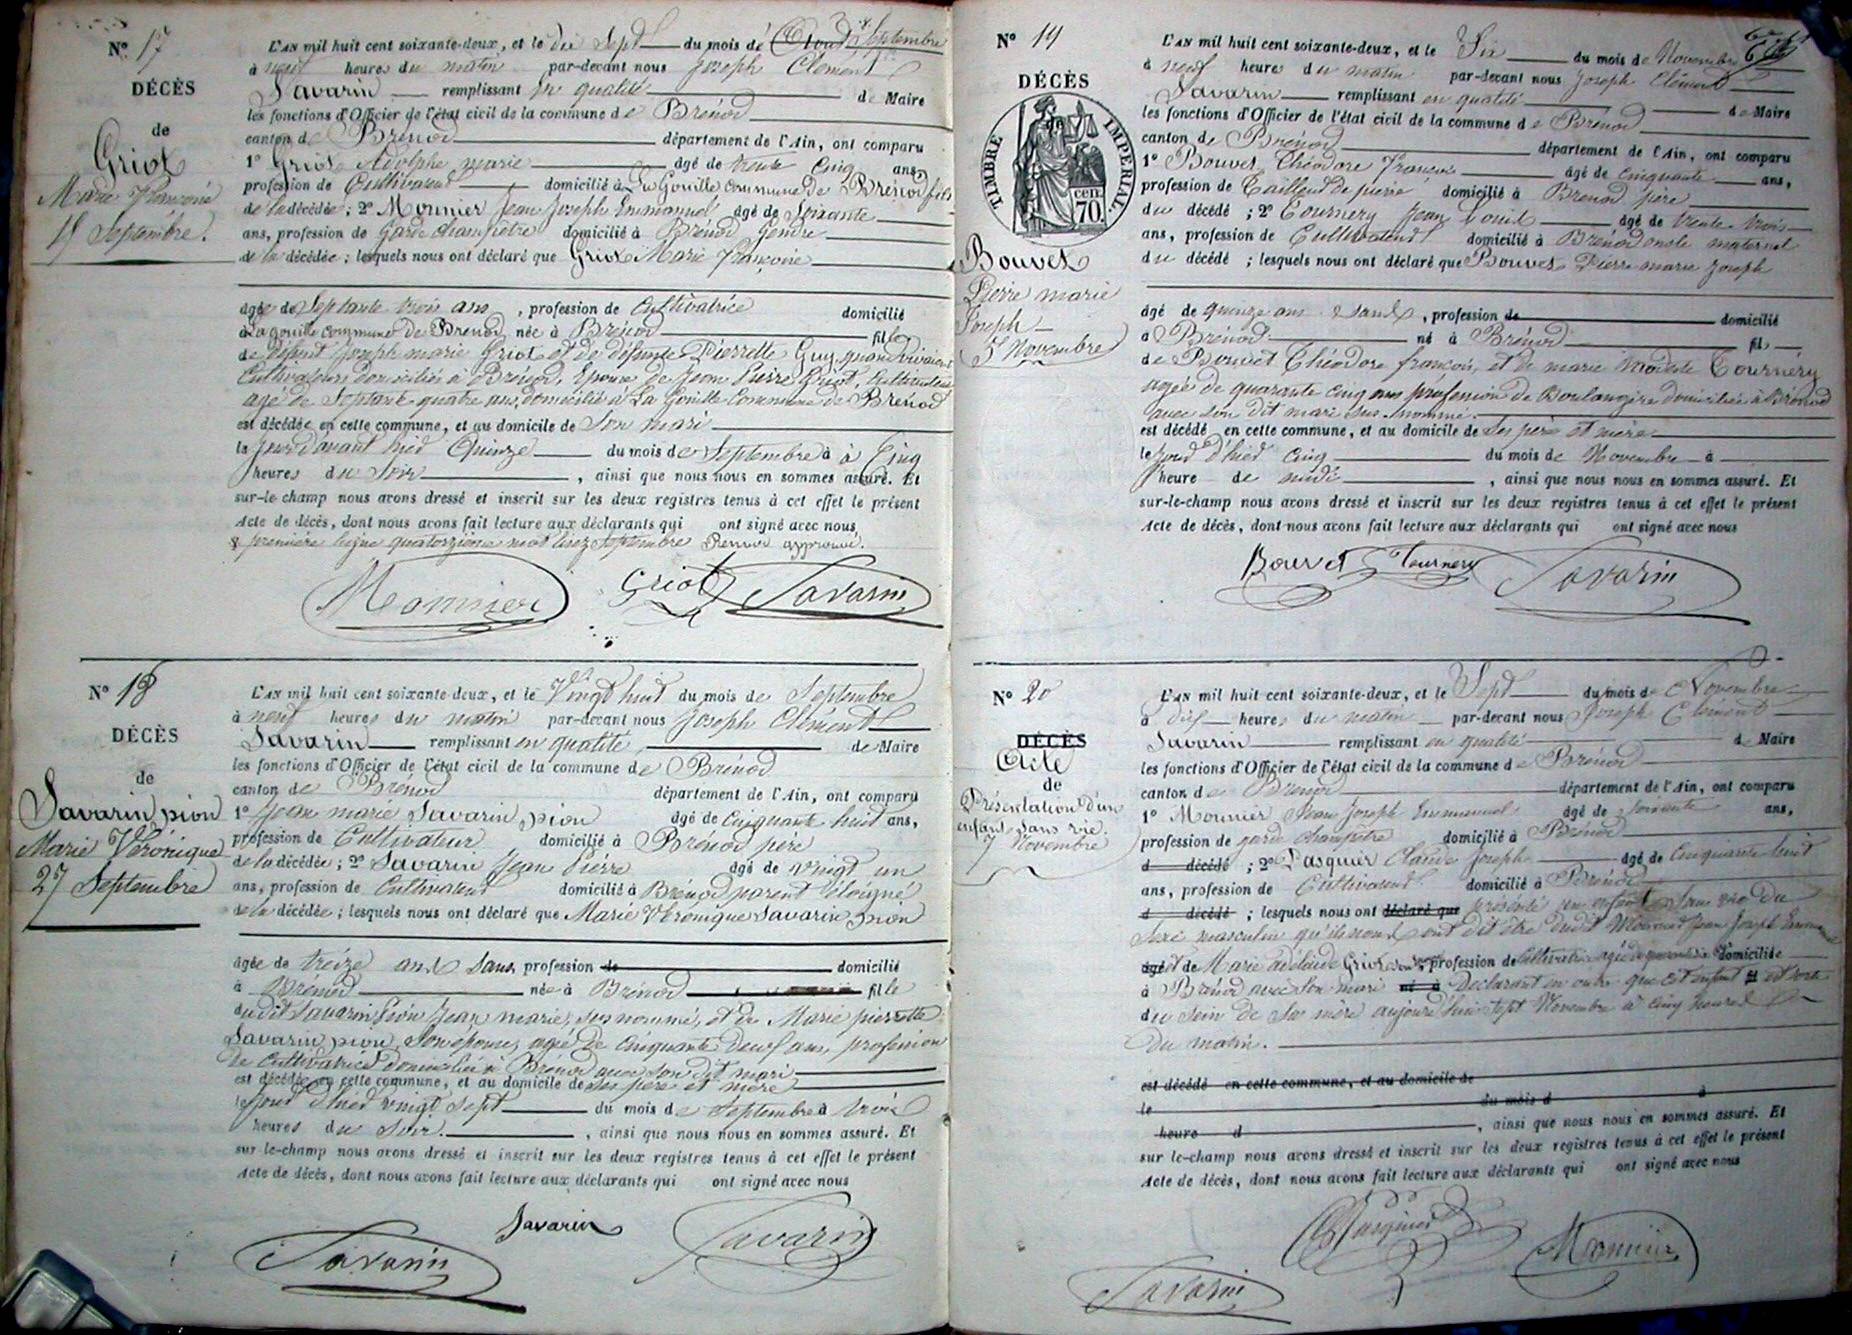 N° 17
DÉCÈS
de
Griot
Marie Françoise
15 Septembre.
L'AN mil huit cent soixante-deux, et le dix Sept du mois de Août Septembre
à neuf heures du matin par-devant nous Joseph Clément
Savarin remplissant en qualité de Maire
les fonctions d'Officier de l'état civil de la commune de Brénod
canton de Brénod département de l'Ain, ont comparu
1° Griot Adolphe marie âgé de trente cinq ans,
profession de Cultivateur domicilié à La Gouille commune de Brénod fils
de la décédée ; 2° Mounier Jean Joseph Emmanuel âgé de Soixante
ans, profession de Garde champêtre domicilié à Brénod Gendre
de la décédée ; lesquels nous ont déclaré que Griot Marie françoise
âgée de Septante trois ans, profession de Cultivatrice domicilié
à La gouille commune de Brénod, née à Brénod fille
de défunt Joseph marie Griot et de défunte Pierrette Guy, quand vivaient
Cultivateurs domiciliés à Brénod, Epouse de Jean Pierre Griot, Cultivateur
âgé de Septante quatre ans, domicilié à La Gouille Commune de Brénod
est décédée en cette commune, et au domicile de Son mari
le jour d'avant hier Quinze du mois de Septembre à à Cinq
heures du Soir, ainsi que nous nous en sommes assuré. Et
sur-le-champ nous avons dressé et inscrit sur les deux registres tenus à cet effet le présent
Acte de décès, dont nous avons fait lecture aux déclarants qui ont signé avec nous
première ligne quatorzième mot lisez Septembre Renvoi approuvé.
Mounier Griot Savarin
N° 18
DÉCÈS
de
Savarin pion
Marie Véronique
27 Septembre
L'AN mil huit cent soixante-deux, et le Vingt huit du mois de Septembre
à neuf heures du matin par-devant nous Joseph Clément
Savarin remplissant en qualité de Maire
les fonctions d'Officier de l'état civil de la commune de Brénod
canton de Brénod département de l'Ain, ont comparu
1° Jean marie Savarin pion âgé de Cinquante huit ans,
profession de Cultivateur domicilié à Brénod père
de la décédée ; 2° Savarin Jean Pierre âgé de vingt un
ans, profession de Cultivateur domicilié à Brénod parent éloigné
de la décédée ; lesquels nous ont déclaré que Marie Véronique Savarin pion
âgée de treize ans Sans profession de domicilié
à Brénod née à Brénod fille
du dit Savarin pion Jean marie, sus nommé, et de Marie pierrette
Savarin pion, Son épouse, agée de Cinquante deux ans, profession
de Cultivatrice domiciliée à Brénod avec son dit mari
est décédée en cette commune, et au domicile de Ses père et mère
le Jour d'hier vingt Sept du mois de Septembre à trois
heures du Soir, ainsi que nous nous en sommes assuré. Et
sur-le-champ nous avons dressé et inscrit sur les deux registres tenus à cet effet le présent
Acte de décès, dont nous avons fait lecture aux déclarants qui ont signé avec nous
Savarin Savarin Savarin
N° 19
DÉCÈS
TIMBRE IMPÉRIAL.
cen.
70
Bouvet
Pierre marie
Joseph
5 Novembre
L'AN mil huit cent soixante-deux, et le Six du mois de Novembre
à neuf heure du matin par-devant nous Joseph Clément
Savarin remplissant en qualité de Maire
les fonctions d'Officier de l'état civil de la commune de Brénod
canton de Brénod département de l'Ain, ont comparu
1° Bouvet Théodore François âgé de Cinquante ans,
profession de Tailleur de pierre domicilié à Brénod père
du décédé ; 2° Tournery Jean Louis âgé de trente trois
ans, profession de Cultivateur domicilié à Brénod oncle maternel
du décédé ; lesquels nous ont déclaré que Bouvet Pierre marie Joseph
âgé de quinze ans Sans, profession de domicilié
à Brénod né à Brénod fils
de Bouvet Théodore françois, et de marie modeste Tournery
agée de quarante cinq ans profession de Boulangère domiciliée à Brénod
avec son dit mari sus-nommé.
est décédé en cette commune, et au domicile de Ses père et mère
le jour d'hier cinq du mois de Novembre à
heure de midi, ainsi que nous nous en sommes assuré. Et
sur-le-champ nous avons dressé et inscrit sur les deux registres tenus à cet effet le présent
Acte de décès, dont nous avons fait lecture aux déclarants qui ont signé avec nous
Bouvet Tournery Savarin
N° 20
DÉCÈS
Acte
de
Présentation d'un
enfant sans vie.
7 Novembre
L'AN mil huit cent soixante-deux, et le Sept du mois de Novembre
à dix heures du matin par-devant nous Joseph Clément
Savarin remplissant en qualité de Maire
les fonctions d'Officier de l'état civil de la commune de Brénod
canton de Brénod département de l'Ain, ont comparu
1° Mounier Jean Joseph Emmanuel âgé de soixante ans,
profession de garde champêtre domicilié à Brénod
d décédé ; 2° Pasquier Claude Joseph âgé de Cinquante huit
ans, profession de Cultivateur domicilié à Brénod
d décédé ; lesquels nous ont déclaré que présenté un enfant Sans vie Du
Sexe masculin qu'ils nous ont dit être dudit Mounier Jean Joseph Emmanuel
âgé et de Marie adélaïde Griot profession de Cultivatrice agée de domicilié
à Brénod avec son mari né à Déclarant en outre que cet enfant est sorti
du Sein de Sa mère aujourd'hui sept Novembre à cinq heures
Du matin.
est décédé en cette commune, et au domicile de
le du mois d à
heure d, ainsi que nous nous en sommes assuré. Et
sur le-champ nous avons dressé et inscrit sur les deux registres tenus à cet effet le présent
Acte de décès, dont nous avons fait lecture aux déclarants qui ont signé avec nous
Pasquier Mounier
Savarin